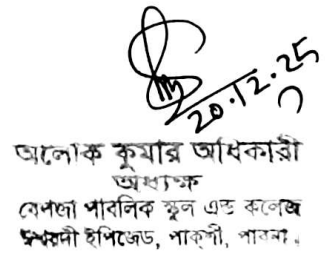 20.12.25
অলোক কুমার অধিকারী
অধ্যক্ষ
বেপজা পাবলিক স্কুল এন্ড কলেজ
ঈশ্বরদী ইপিজেড, পাকশী, পাবনা।